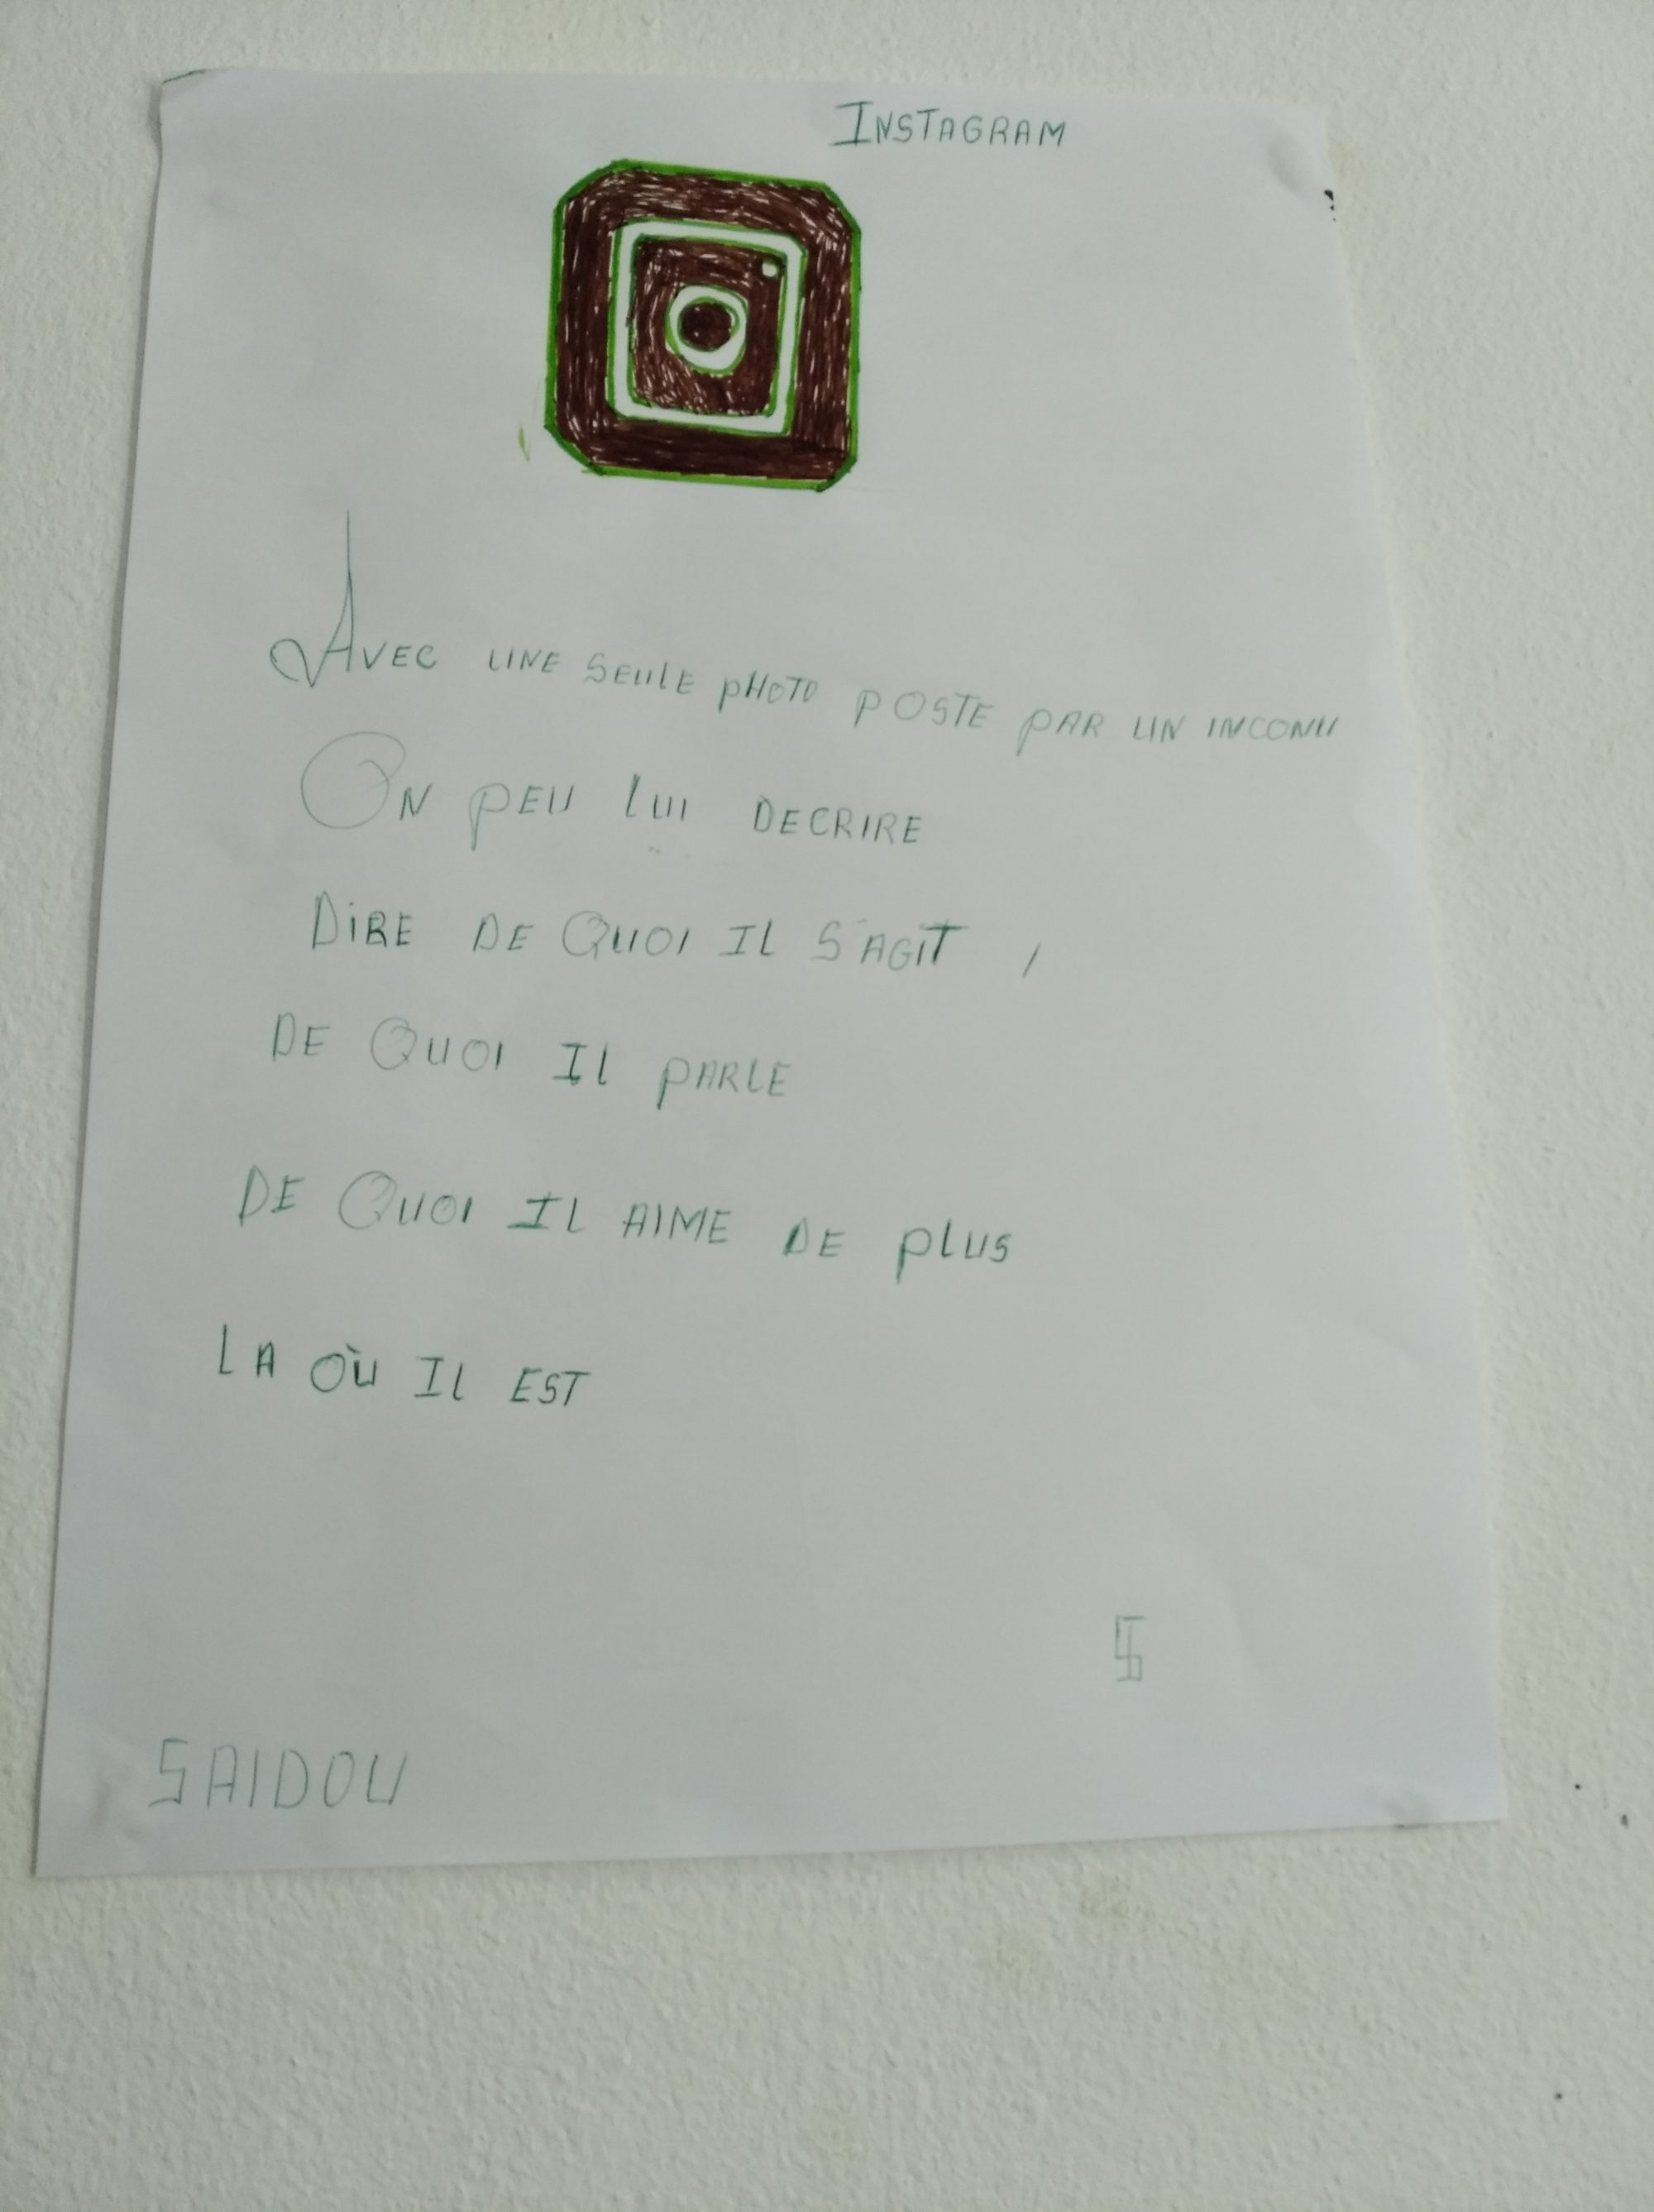 INSTAGRAM
AVEC UNE SEULE PHOTO POSTE PAR UN INCONU
ON PEU LUI DECRIRE
DIRE DE QUOI IL S'AGIT,
DE QUOI IL PARLE
DE QUOI IL AIME DE PLUS
LA OÙ IL EST
SAIDOU